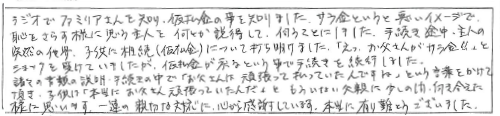 ラジオでファミリアさんを知り、仮払金の事を知りました。サラ金というと悪いイメージで、
恥をさらす様に思う主人を何とか説得して、伺うことにしました。手続き途中、主人の
突然の他界、子供に相続(仮払金)について打ち明けました。「えっ、お父さんがサラ金!!」と
ショックを受けていましたが、仮払金が戻るという事で手続きを続行しました。
諸々の書類の説明・手続きの中で「お父さんは頑張って払っていたんですね」という言葉をかけて
頂き、子供は「本当にお父さん頑張っていたんだ」ともういない父親に少しの間、向き合えた
様に思います。一連の親切な対応に、心から感謝しています。本当に有り難うございました。